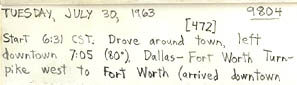 TUESDAY, JULY 30, 1963 9804
[472]
Start 6:31 CST. Drove around town, left
downtown 7:05 (80°), Dallas-Fort Worth Turn-
pike west to Fort Worth (arrived downtown